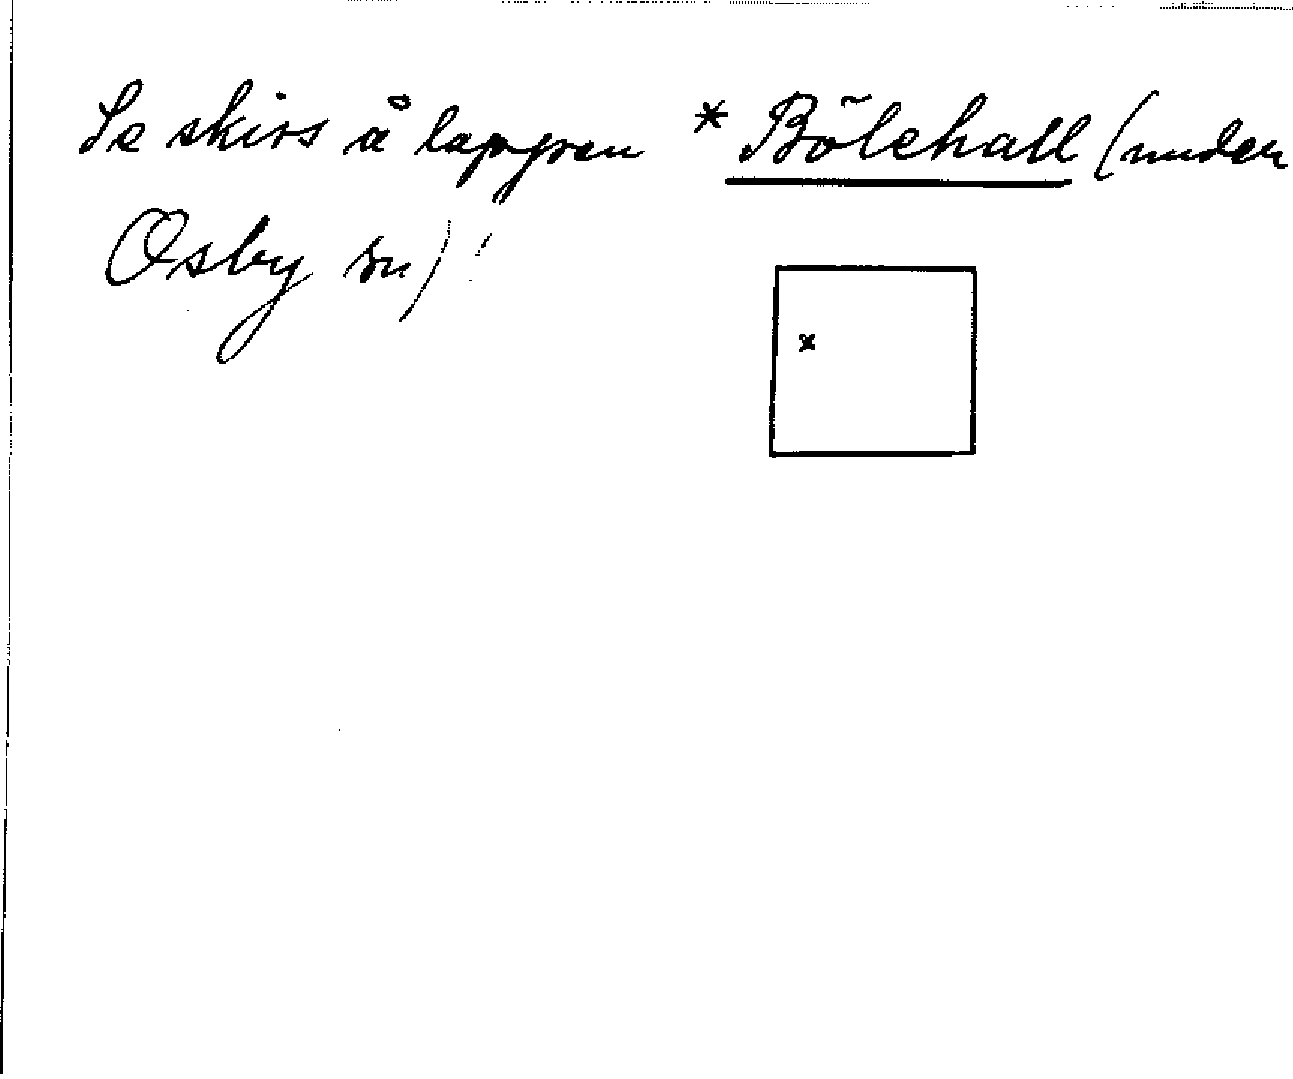 Se skiss å lappen * Bölehall (under
Osby sn)!
x